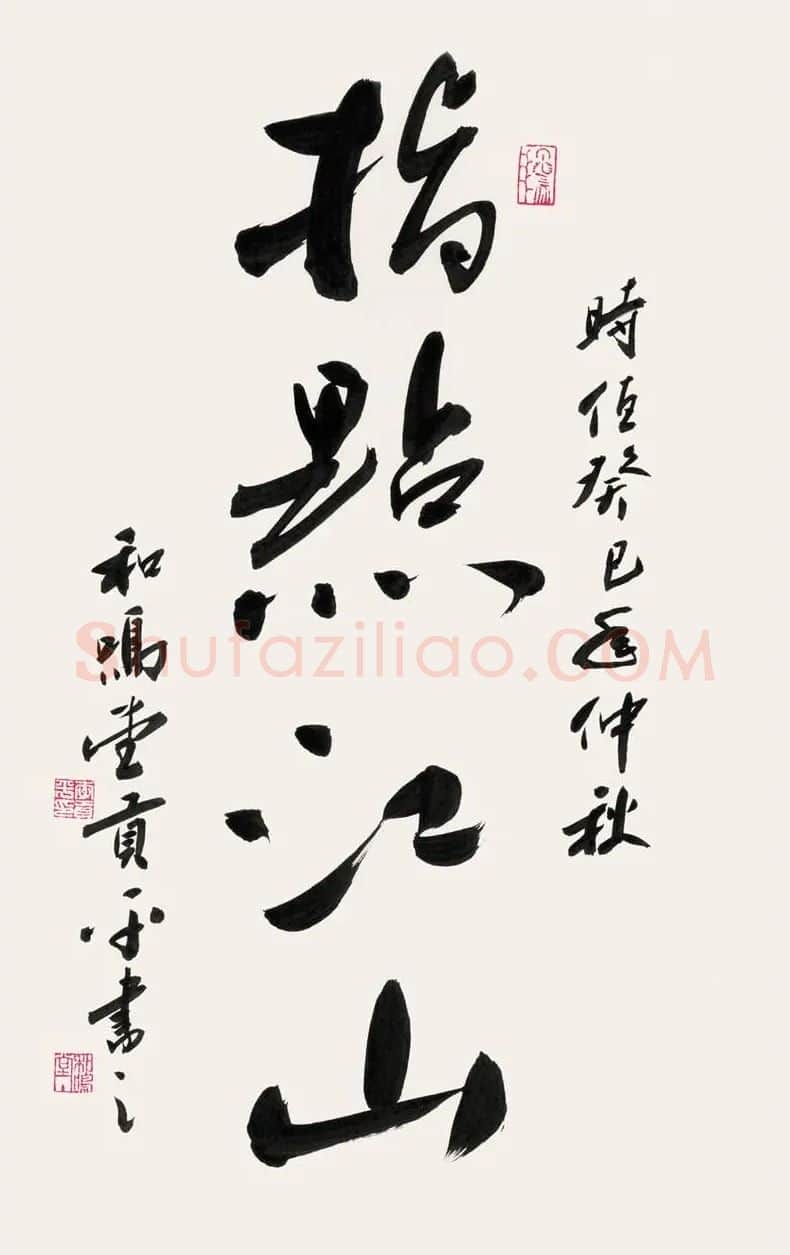 時值癸巳年仲秋
指點江山
和鳴堂貢平書之
Shufaziliao.COM